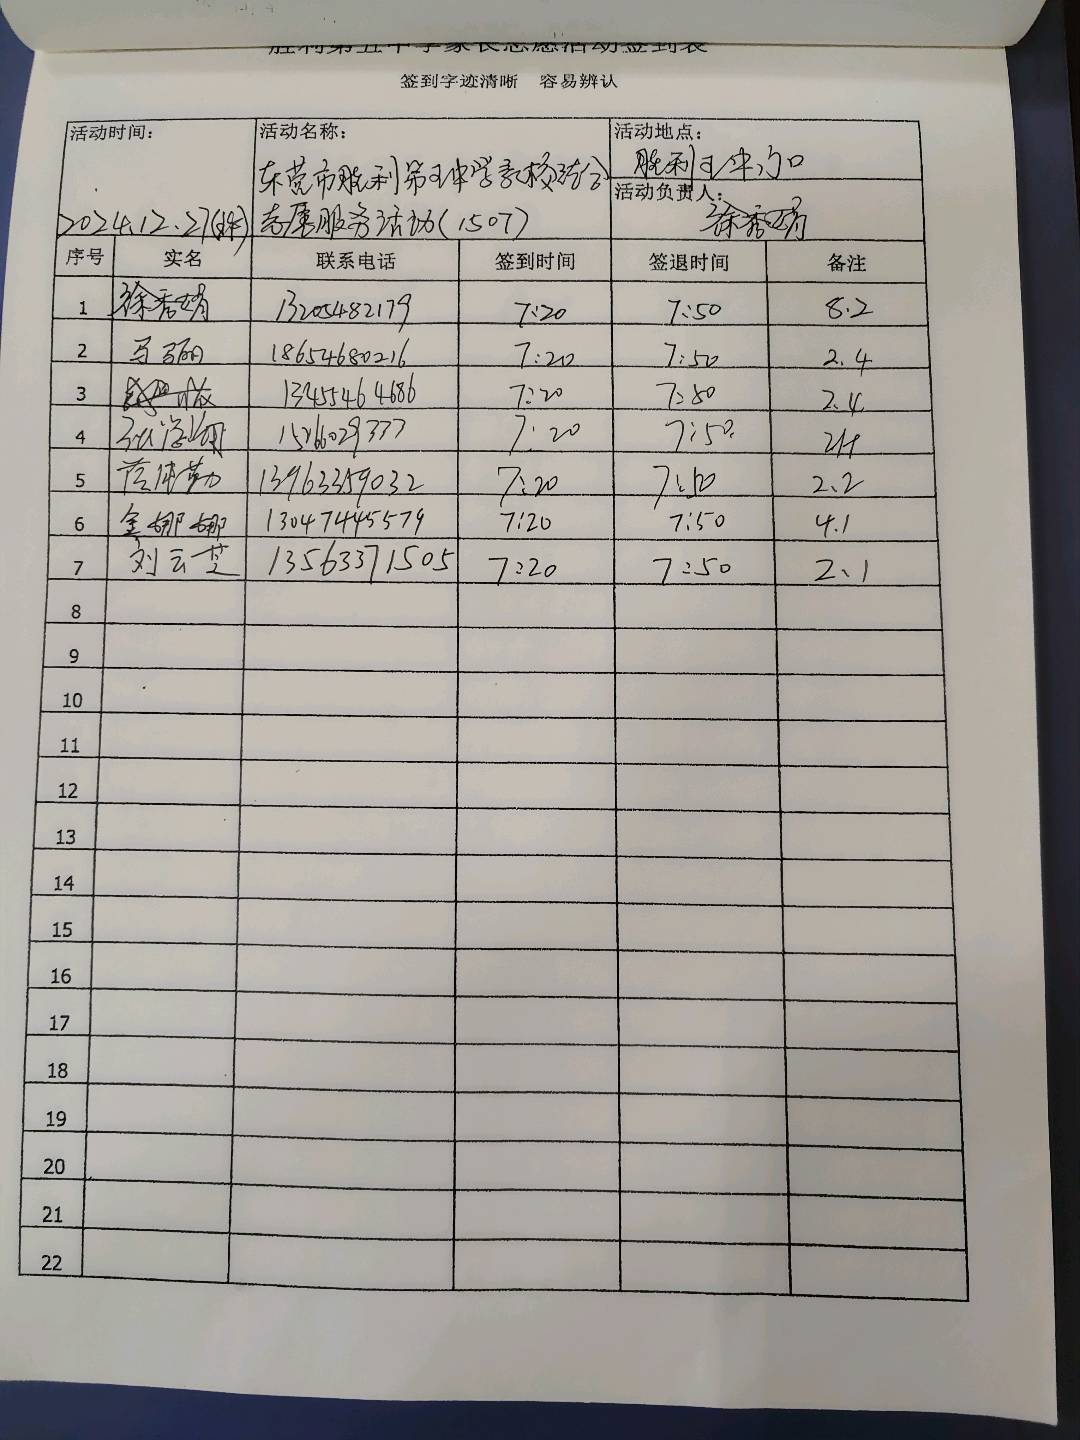 胜利第五中学家长志愿活动签到表
签到字迹清晰 容易辨认
活动时间： 活动名称： 活动地点：
东营市胜利第五中学家校结合 胜利五中门口
活动负责人：
2024.12.27 志愿服务活动(1507) 徐秀娟
序号 实名 联系电话 签到时间 签退时间 备注
1 徐秀娟 13205482179 7:20 7:50 8.2
2 马丽 18654680216 7:20 7:50 2.4
3 13455464686 7:20 7:50 2.4
4 15266029377 7:20 7:50
5 13963359032 7:20 7:50 2.2
6 金娜娜 13047445579 7:20 7:50 4.1
7 刘云芝 13563371505 7:20 7:50 2.1
8
9
10
11
12
13
14
15
16
17
18
19
20
21
22